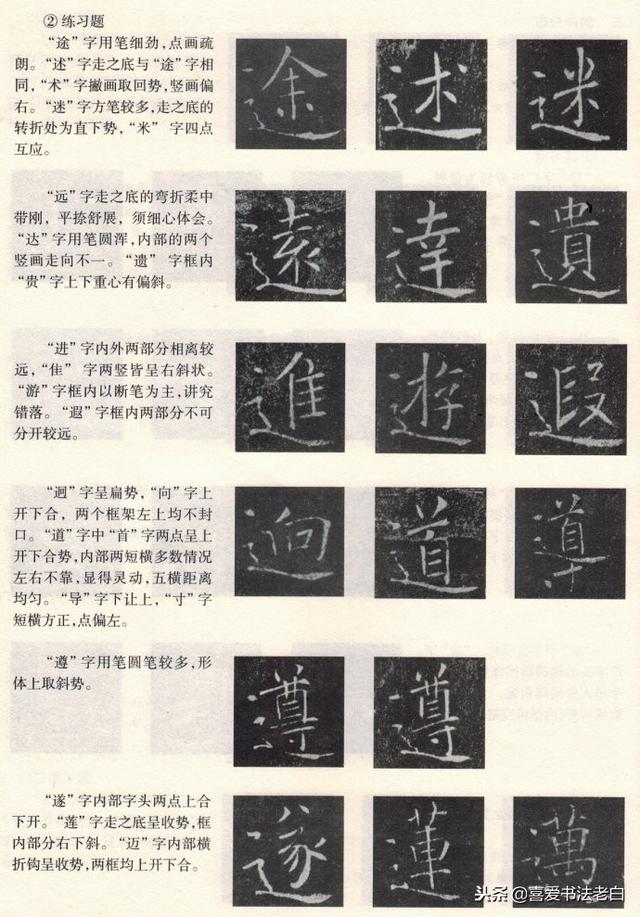 ②练习题
“途”字用笔细劲，点画疏
朗。“述”字走之底与“途”字相
同，“术”字撇画取回势，竖画偏
右。“迷”字方笔较多，走之底的
转折处为直下势，“米” 字四点
互应。
途 述 迷
“远”字走之底的弯折柔中
带刚，平捺舒展，须细心体会。
“达”字用笔圆浑，内部的两个
竖画走向不一。“遗” 字框内
“贵”字上下重心有偏斜。
遠 達 遺
“进”字内外两部分相离较
远，“隹” 字两竖皆呈右斜状。
“游”字框内以断笔为主，讲究
错落。“遐”字框内两部分不可
分开较远。
進 遊 遐
“迥”字呈扁势，“向”字上
开下合，两个框架左上均不封
口。“道”字中“首”字两点呈上
开下合势，内部两短横多数情况
左右不靠，显得灵动，五横距离
均匀。“导”字下让上，“寸”字
短横方正，点偏左。
迥 道 導
“遵”字用笔圆笔较多，形
体上取斜势。
遵 遵
“遂”字内部字头两点上合
下开。“莲”字走之底呈收势，框
内部分右下斜。“迈”字内部横
折钩呈收势，两框均上开下合。
遂 蓮 邁
头条@喜爱书法老白